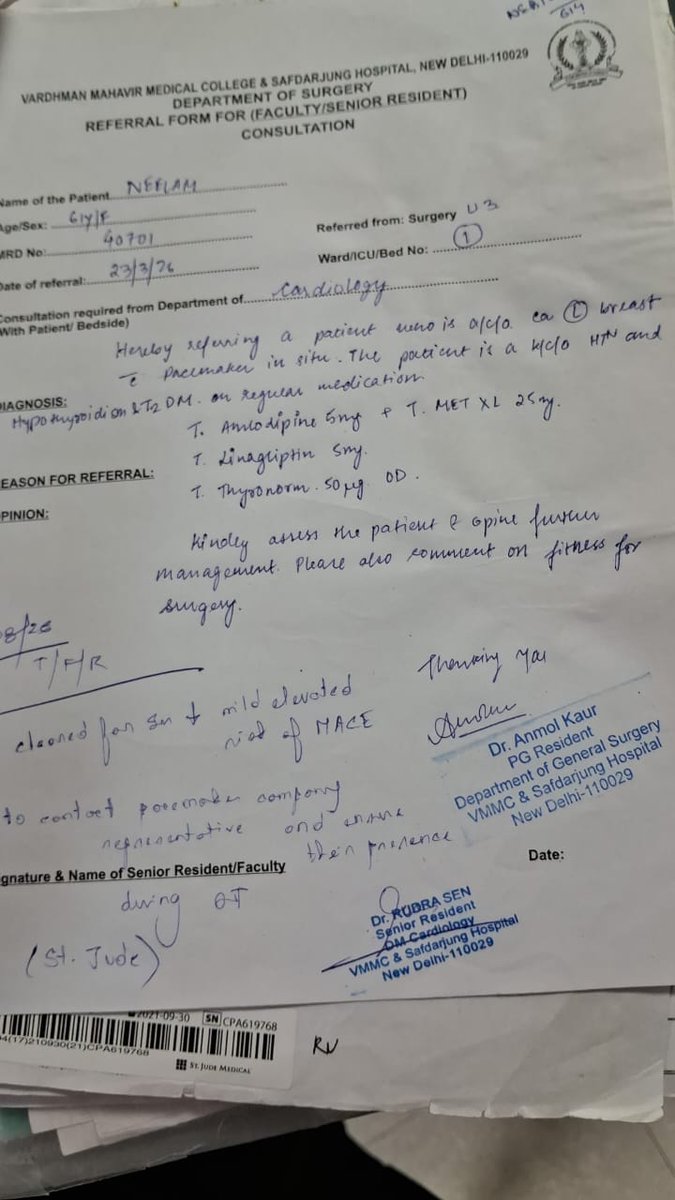 614
VARDHMAN MAHAVIR MEDICAL COLLEGE & SAFDARJUNG HOSPITAL, NEW DELHI-110029
DEPARTMENT OF SURGERY
REFERRAL FORM FOR (FACULTY/SENIOR RESIDENT)
CONSULTATION
Name of the Patient NEELAM
Age/Sex: 61Y/F
Referred from: Surgery U3
MRD No: 40701
Ward/ICU/Bed No: 1
Date of referral: 23/3/26
Consultation required from Department of Cardiology
With Patient/ Bedside)
Hereby referring a patient who is a/c/o ca L breast
c Pacemaker in situ. The patient is a k/c/o HTN and
DIAGNOSIS:
Hypothyroidism & T2DM. on regular medication
T. Amlodipine 5mg + T. MET XL 25mg.
T. Linagliptin 5mg.
EASON FOR REFERRAL:
T. Thyronorm. 50µg OD.
PINION:
Kindly assess the patient & opine further
management. Please also comment on fitness for
surgery.
T/F/R
Thanking You
cleared for mild elevated
risk of MACE
Dr. Anmol Kaur
PG Resident
Department of General Surgery
VMMC & Safdarjung Hospital
New Delhi-110029
to contact pacemaker company
representative and ensure
their presence
ignature & Name of Senior Resident/Faculty
Date:
during OT
(St. Jude)
Dr. RUDRA SEN
Senior Resident
DM Cardiology
VMMC & Safdarjung Hospital
New Delhi-110029
2021-09-30 SN CPA619768
4(17)210930(21)CPA619768
ST. JUDE MEDICAL
RV